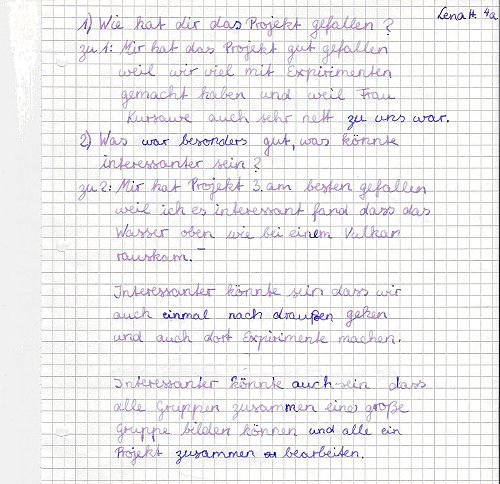 Lena H. 4a
1) Wie hat dir das Projekt gefallen?
zu 1: Mir hat das Projekt gut gefallen
weil wir viel mit Expirimenten
gemacht haben und weil Frau
Kursawe auch sehr nett zu uns war.
2) Was war besonders gut, was könnte
interessanter sein?
zu 2: Mir hat Projekt 3. am besten gefallen
weil ich es interessant fand dass das
Wasser oben wie bei einem Vulkan
rauskam.
Interessanter könnte sein dass wir
auch einmal nach draußen gehen
und auch dort Expirimente machen.
Interessanter könnte auch sein dass
alle Gruppen zusammen eine große
Gruppe bilden können und alle ein
Projekt zusammen bearbeiten.